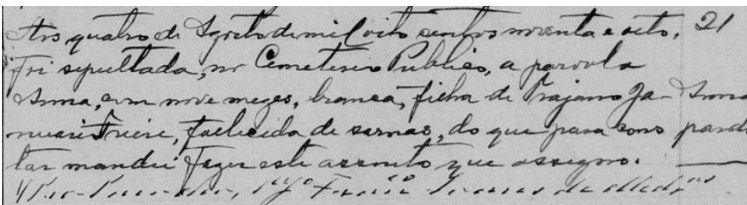 Aos quatro de Agosto de mil oito centos noventa e oito, 21
foi sepultada, no Cemeterio Publico, a parvola
Anna, com nove mezes, branca, filha de Trajano Ja- Anna
nuario Freire, fallecida de sarnas, do que para cons parvola
tar mandei fazer este assento que assigno.